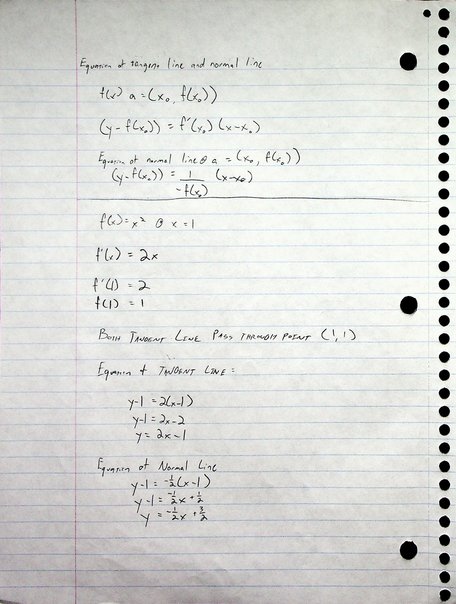 Equation of tangent line and normal line
f(x) a = (x₀, f(x₀))
(y - f(x₀)) = f'(x₀) (x - x₀)
Equation of normal line @ a = (x₀, f(x₀))
(y - f(x₀)) = 1/-f(x₀) (x - x₀)
f(x) = x² @ x = 1
f'(x) = 2x
f'(1) = 2
f(1) = 1
BOTH TANGENT LINE PASS THROUGH POINT (1,1)
Equation of TANGENT LINE:
y-1 = 2(x-1)
y-1 = 2x-2
y = 2x-1
Equation of Normal Line
y-1 = -1/2(x-1)
y-1 = -1/2x + 1/2
y = -1/2x + 3/2